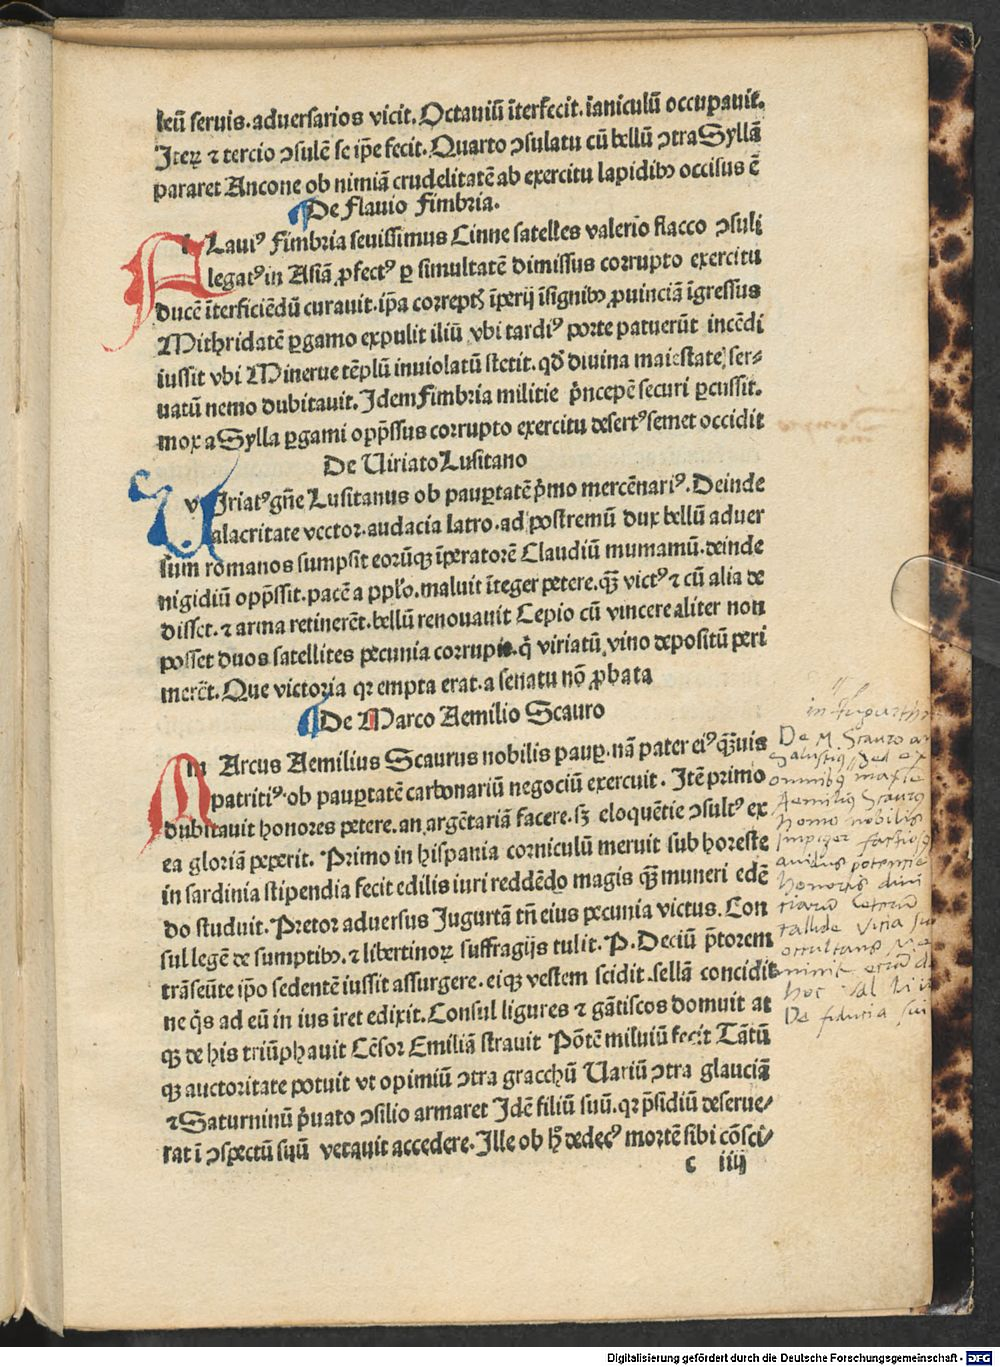 leū seruis.adversarios vicit.Octauiū īterfecit.ianiculū occupauit.
Iteꝝ ⁊ tercio ꝯsulē se ip̄e fecit.Quarto ꝯsulatu cū bellū ꝯtra Syllā
pararet Ancone ob nimiā crudelitatē ab exercitu lapidibꝫ occisus ē
¶De Flauio Fimbria.
Flauiꝰ Fimbria seuissimus Cinne satelles valerio flacco ꝯsuli
legatꝰ in Asiā ꝓfectꝰ ꝑ simultatē dimissus corrupto exercitu
ducē īterficiēdū curauit.ip̄a correptꝭ īperij īsignibꝫ ꝓuinciā īgressus
Mithridatē ꝑgamo expulit iliū vbi tardiꝰ porte patuerūt incēdi
iussit vbi Minerue tēplū inuiolatū stetit.qd̄ diuina maiestate ser-
uatū nemo dubitauit.Idem Fimbria militie p̄ncepē securi ꝑcussit.
mox a Sylla ꝑgami opp̄ssus corrupto exercitu desertꝰ semet occidit
De Uiriato Lusitano
vUIriatꝰ gn̄e Lusitanus ob pauꝑtatē p̄mo mercēnariꝰ.Deinde
alacritate vector.audacia latro.ad postremū dux bellū aduer
sum romanos sumpsit eorūqꝫ īperatorē Claudiū mumamū.deinde
nigidiū opp̄ssit.pacē a pp̄lo.maluit īteger petere.qꝫ̄ victꝰ ⁊ cū alia de
disset.⁊ arma retinerēt.bellū renouauit Cepio cū vincere aliter non
posset duos satellites pecunia corrupit.q̄ viriatū vino depositū peri
merēt.Que victoria qꝛ empta erat.a senatu nō ꝓbata
¶De Marco Aemilio Scauro
mMArcus Aemilius Scaurus nobilis pauꝑ.nā pater eiꝰ qꝫ̄uis
patritiꝰ.ob pauꝑtatē carbonariū negociū exercuit. Itē primo
dubitauit honores petere.an argētariā facere.sꝫ eloquētie ꝯsultꝰ ex
ea gloriā peperit. Primo in hispania corniculū meruit sub horeste
in sardinia stipendia fecit edilis iuri reddēdo magis qꝫ̄ muneri edē
do studuit.Pretor adversus Jugurtā tn̄ eius pecunia victus.Con
sul legē de sumptibꝫ.⁊ libertinoꝝ suffragijs tulit.P.Deciū p̄torem
trāseūte ip̄o sedentē iussit assurgere.eiqꝫ vestem scidit.sellā concidit
ne q̄s ad eū in ius iret edixit.Consul ligures ⁊ gātiscos domuit at
qꝫ de his triūphauit Cēsor Emiliā strauit Pōtē miluiū fecit Tātū
qꝫ auctoritate potuit vt opimiū ꝯtra gracchū Uariū ꝯtra glauciā
⁊ Saturninū p̄uato ꝯsilio armaret Idē filiū suū.qꝛ p̄sidiū deserue/
rat ī ꝯspectū suū vetauit accedere.Ille ob h̄ dedecꝰ mortē sibi cōsci/
c iiij
De M Scauro
Salustius sed ex
omnibus
Aemilius Scaurus
homo nobilis
Impiger factios
auidus potentie
honoris diui
tiarū Ceterū
callide vitia su
occultans
hoc
De fiducia sui
Digitalisierung gefördert durch die Deutsche Forschungsgemeinschaft - DFG